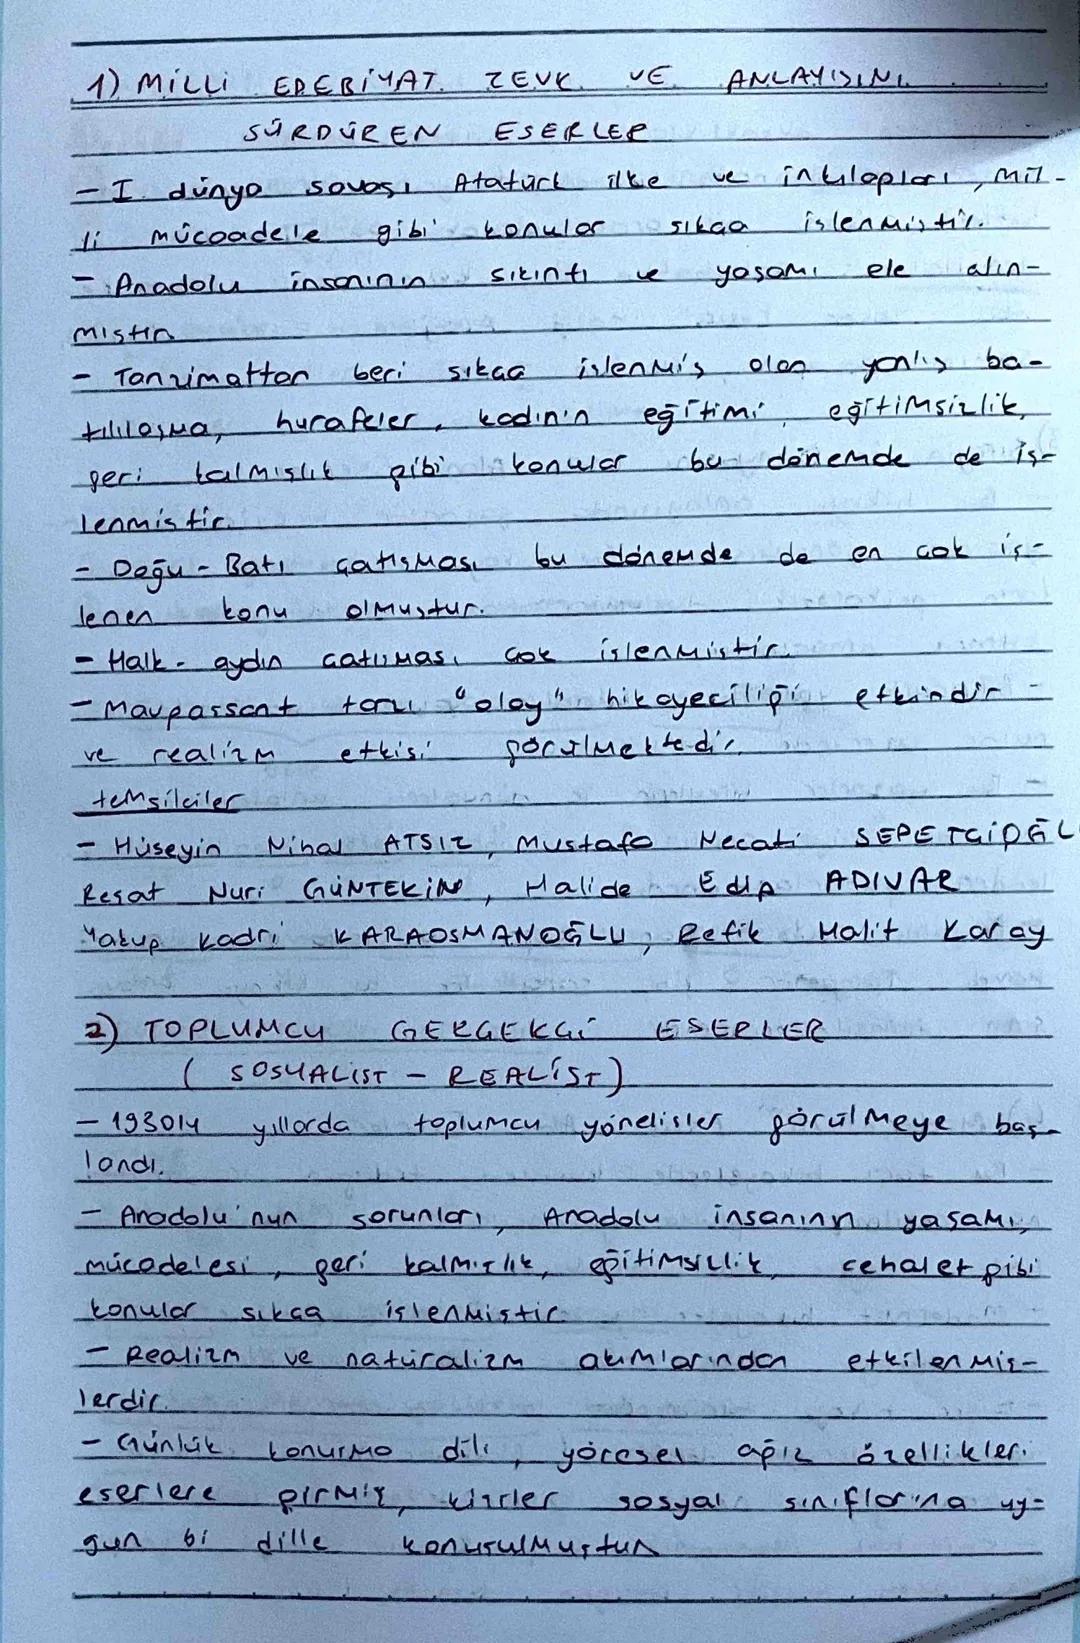 1) MİLLİ EDEBİYAT ZEVK VE ANLAYIŞINI
SÜRDÜREN ESERLER
- I. dünya savaşı Atatürk ilke ve inkılapları, mil-
li mücoadele gibi konular sıkça işlenmiştir.
- Anadolu insanının sıkıntı ve yaşamı ele alın-
mıştır
- Tanzimattan beri sıkça işlenmiş olan yanlış ba-
tılılaşma, hurafeler, kadının eğitimi eğitimsizlik,
geri kalmışlık gibi konular bu dönemde de iş-
lenmiştir.
- Doğu - Batı çatışması bu dönemde de en çok iş-
lenen konu olmuştur.
- Halk - aydın çatışması çok işlenmiştir.
- Maupassant tarzı "olay" hikayeciliği etkindir -
ve realizm etkisi görülmektedir.
temsilciler
- Hüseyin Nihal ATSIZ, Mustafa Necati SEPETÇİOĞL
Reşat Nuri GÜNTEKİN, Halide Edip ADIVAR
Yakup Kadri KARAOSMANOĞLU, Refik Halit Karay
2) TOPLUMCU GERÇEKÇİ ESERLER
( SOSYALİST - REALİST )
- 1930lu yıllarda toplumcu yönelişler görülmeye baş-
landı.
- Anadolu'nun sorunları, Anadolu insanının yaşamı,
mücadelesi, geri kalmışlık, eğitimsizlik, cehalet gibi
konular sıkça işlenmiştir.
- Realizm ve natüralizm akımlarından etkilenmiş-
lerdir.
- Günlük konuşma dili, yöresel ağız özellikleri
eserlere girmiş, kişiler sosyal sınıflarına uy-
gun bi dille konuşulmuştur